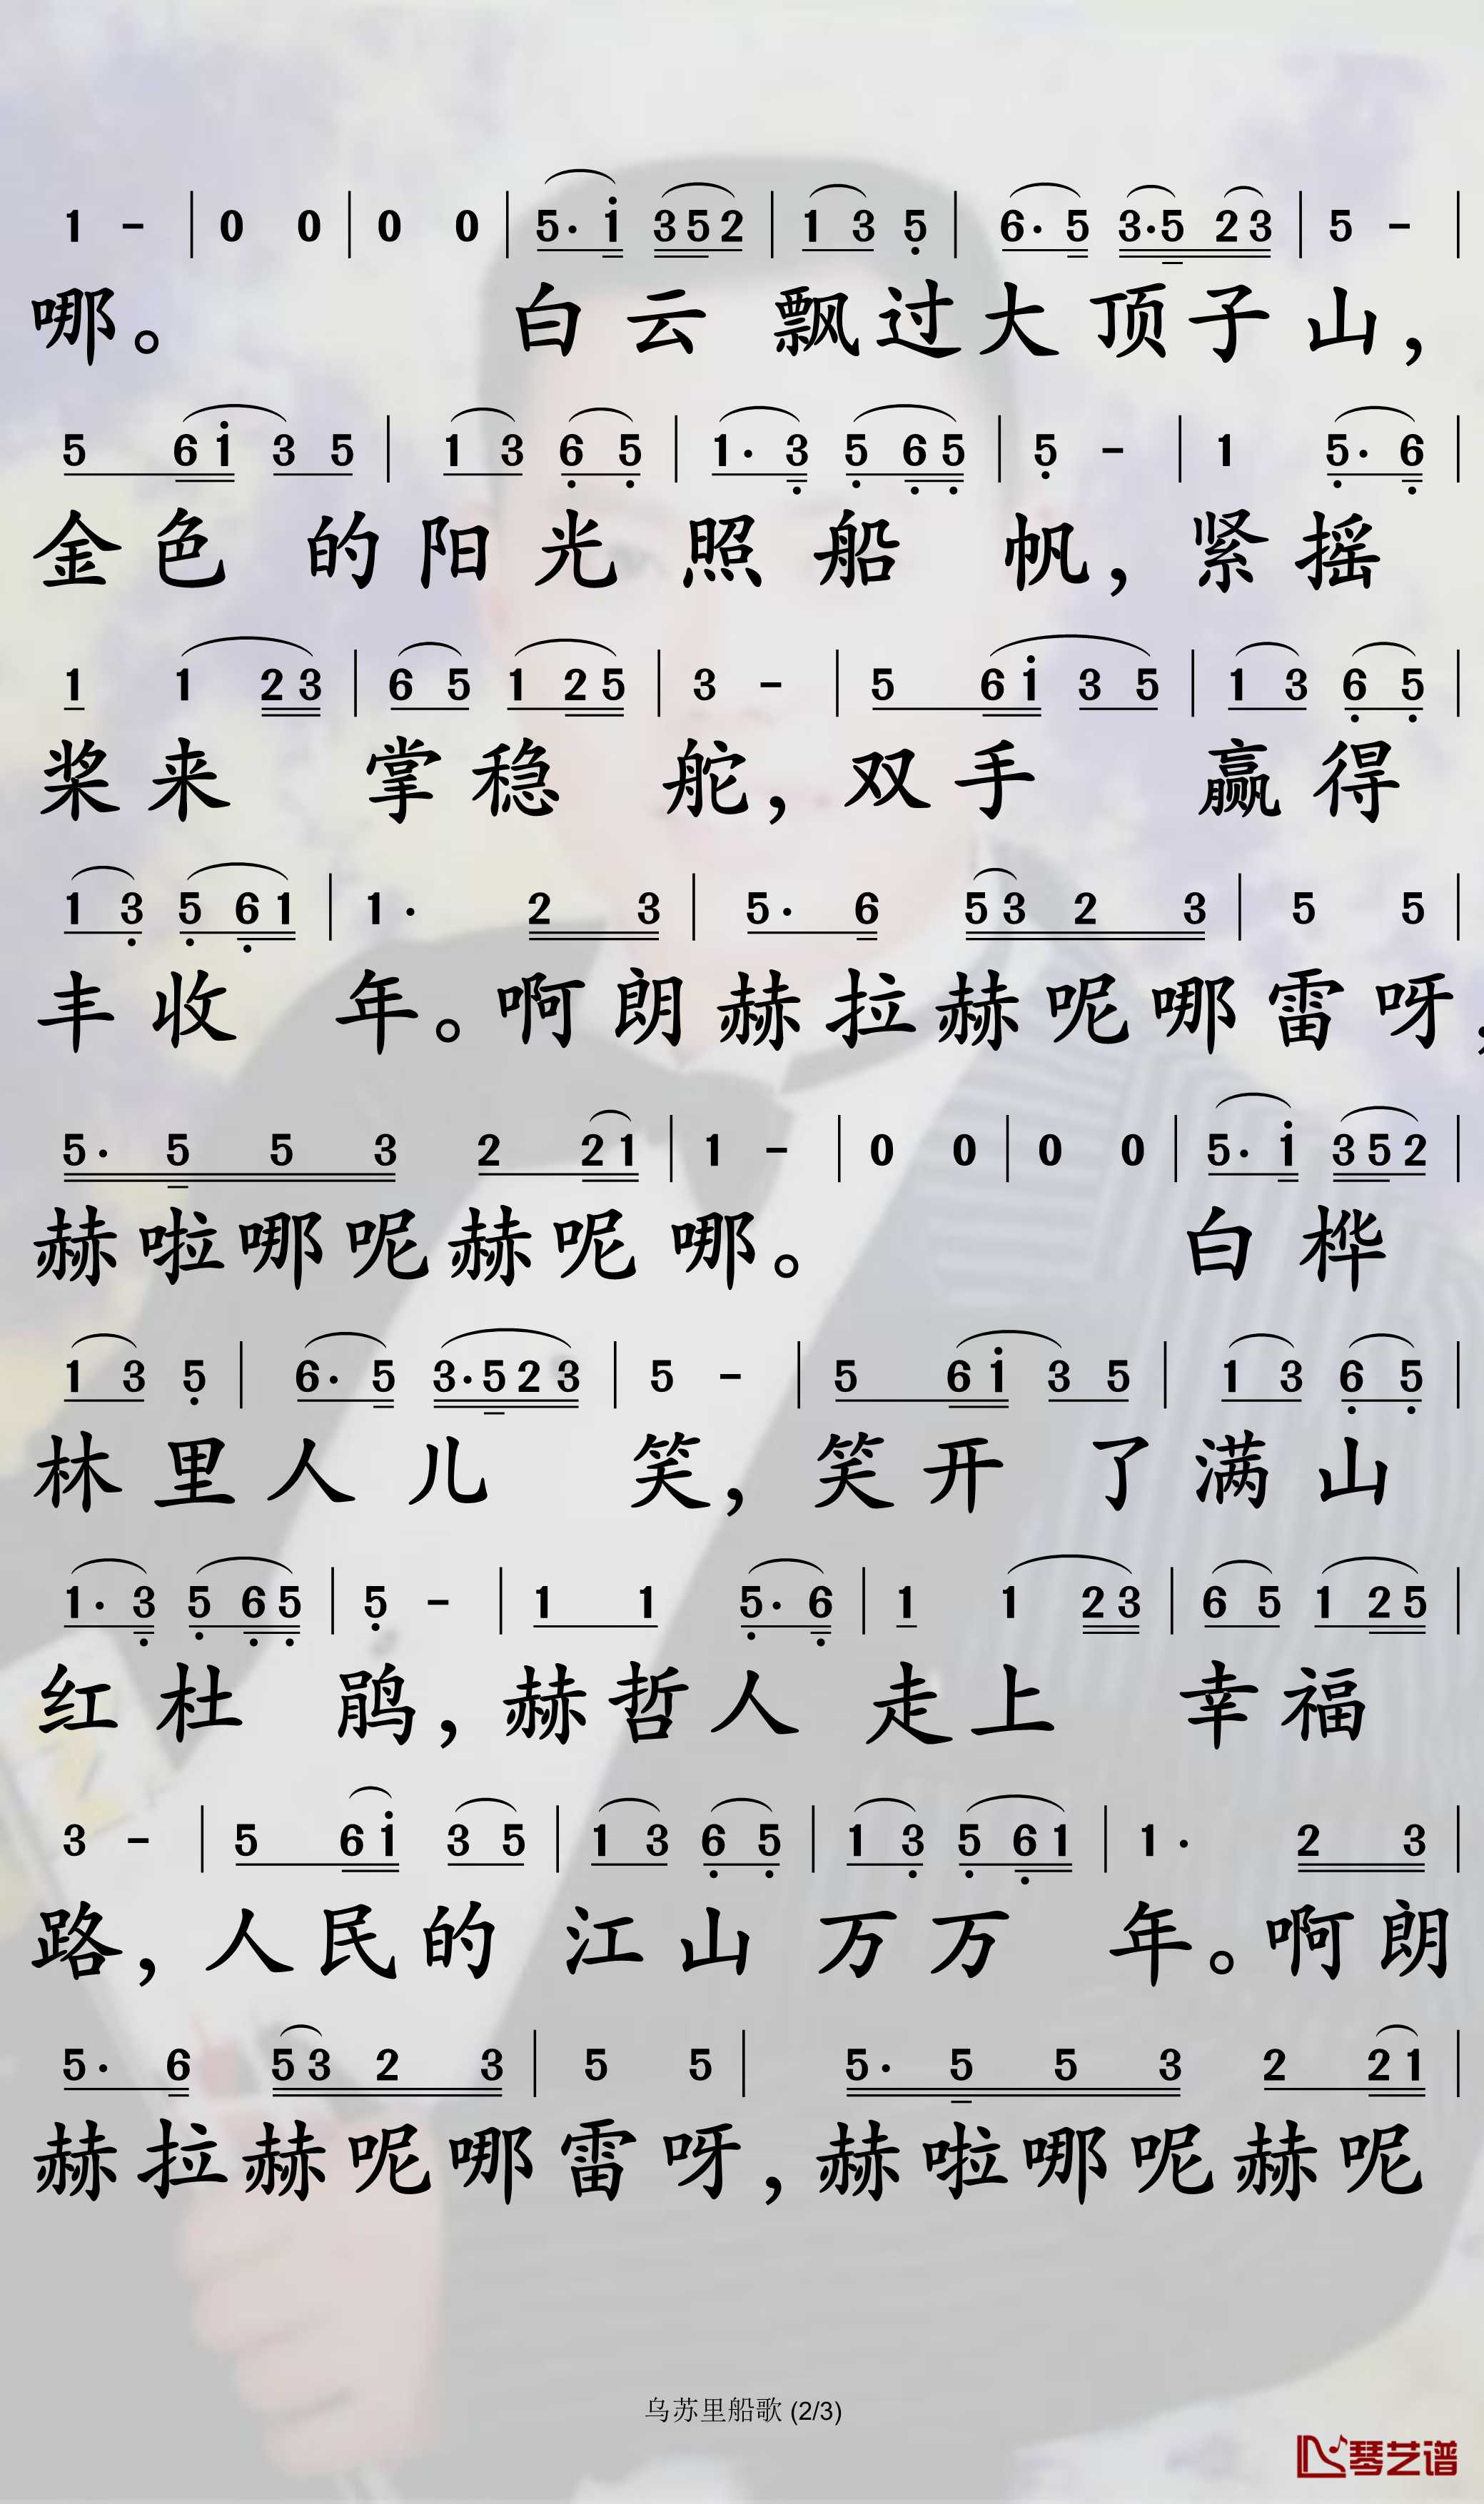 1 - | 0 0 | 0 0 | 5· i 3 5 2 | 1 3 5 | 6· 5 3·5 2 3 | 5 - |
哪。 白云 飘过大顶子山,
5 6 i 3 5 | 1 3 6 5 | 1· 3 5 6 5 | 5 - | 1 5· 6 |
金色 的阳光照船 帆,紧摇
1 1 2 3 | 6 5 1 2 5 | 3 - | 5 6 i 3 5 | 1 3 6 5 |
桨来 掌稳 舵,双手 赢得
1 3 5 6 1 | 1· 2 3 | 5· 6 5 3 2 3 | 5 5 |
丰收 年。啊朗赫拉赫呢哪雷呀,
5· 5 5 3 2 2 1 | 1 - | 0 0 | 0 0 | 5· i 3 5 2 |
赫啦哪呢赫呢哪。 白桦
1 3 5 | 6· 5 3·5 2 3 | 5 - | 5 6 i 3 5 | 1 3 6 5 |
林里人儿 笑,笑开 了满山
1· 3 5 6 5 | 5 - | 1 1 5· 6 | 1 1 2 3 | 6 5 1 2 5 |
红杜 鹃,赫哲人 走上 幸福
3 - | 5 6 i 3 5 | 1 3 6 5 | 1 3 5 6 1 | 1· 2 3 |
路,人民的 江山 万万 年。啊朗
5· 6 5 3 2 3 | 5 5 | 5· 5 5 3 2 2 1 |
赫拉赫呢哪雷呀,赫啦哪呢赫呢
乌苏里船歌 (2/3)
琴艺谱